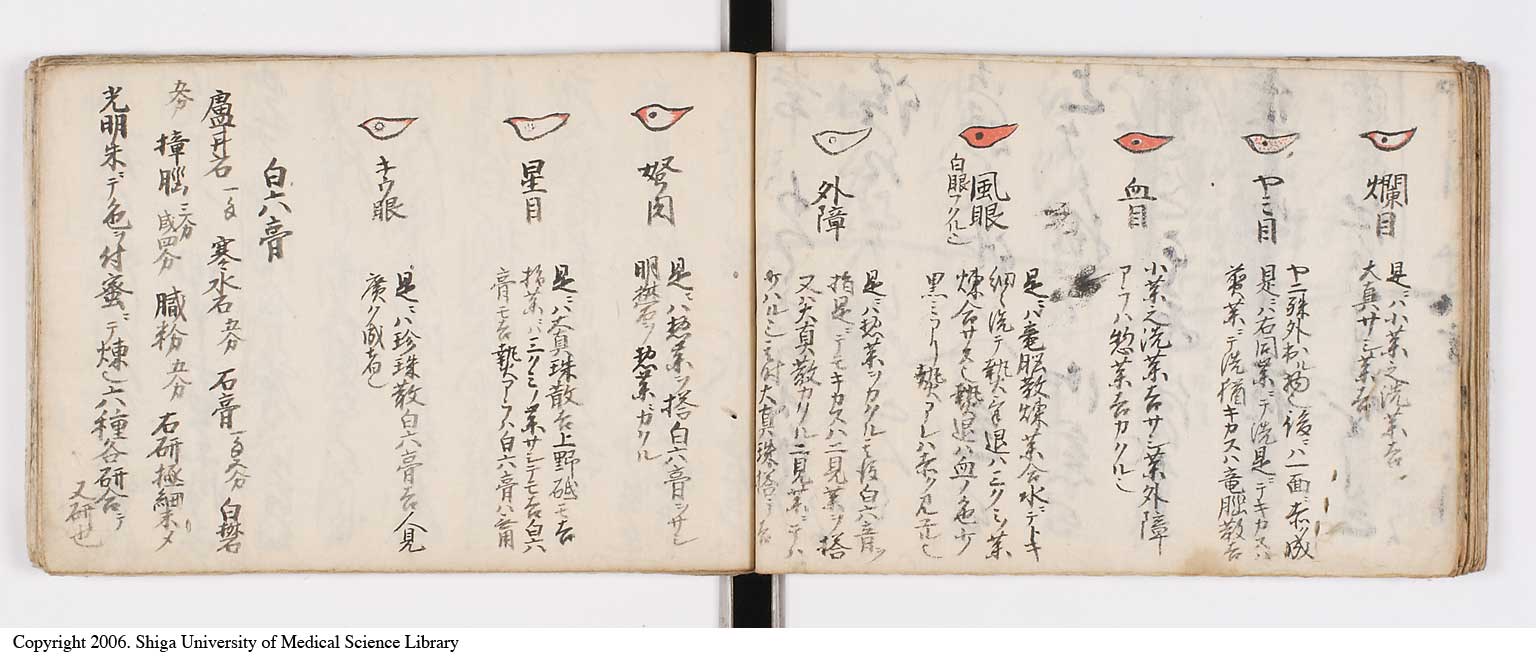 爛目
是ニハ小薬之洗薬吉
大真サシ薬吉
ヤニ目
ヤニ殊外出ル物也後ニハ一面ニ赤ク成
是ニハ右同薬ニテ洗是ニテキカスハ
前薬ニテ洗猶キカスハ竜脳散吉
血目
小薬之洗薬吉サシ薬外障
アラハ惣薬吉カクル也
風眼
白眼フクルヽ也
是ニハ竜脳散煉薬合水ニテトキ
細々洗テ熱
煉合サス也熱退ハ血ノ色少
黒ミアリ熱アレハ赤ク見
外障
是ニハ惣薬ヲカクル
指是ニテモキカスハ二見薬ヲ搭
又ハ大真散カクル二見薬ニテハ
大真珠搭テ吉
努肉
是ニハ惣薬ヲ搭白六膏ヲサシ
明礬石ノ惣薬ガカクル
星目
是ニハ大真珠散吉上野砥モ吉
指薬ニハ三クミノ薬サシテモ吉白六
膏モ吉熱アラハ白六膏ハ斉用
キウ眼
是ニハ珍珠散白六膏吉人見
廣ク成者也
白六膏
爐甘石 一匁 寒水石 五分 石膏 一匁五分 白礬
五分 樟脳 三分 或四分 膩粉 五分 右研極細末メ
光明朱ニテ色ヲ付蜜ニテ煉也六種各研合テ
又研也
Copyright 2006. Shiga University of Medical Science Library